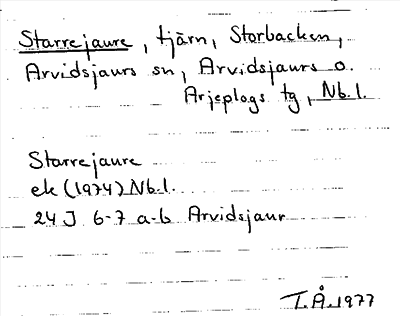 Starrejaure, tjärn, Storbacken,
Arvidsjaurs sn, Arvidsjaurs o.
Arjeplogs tg, Nb.l.
Starrejaure
ek (1974) Nb.l.
24 J 6-7 a-b Arvidsjaur
T.Å. 1977